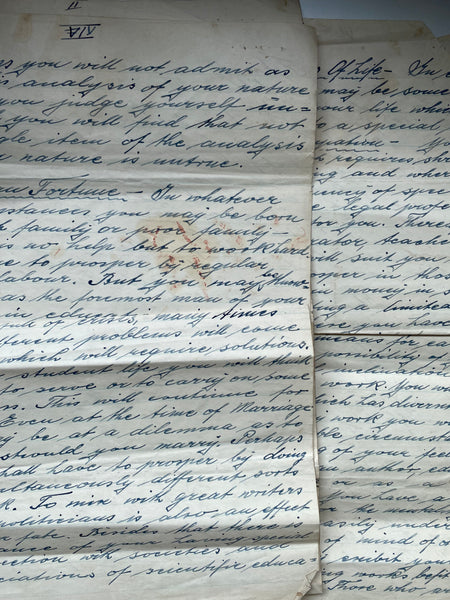 II
XI/A
as you will not admit as
s analysis of your nature
you judge yourself un-
you will find that not
le item of the analysis
nature is untrue.
Fortune - In whatever
stances you may be born
family or poor family -
is no help but to work hard
e to prosper by regular
labour. But you may be known
as the foremost man of your
many times
erent problems will come
which will require solutions.
student life you will this
serve or to carry on some
This will continue for
Even at the time of Marriage
y be at a dilemma as to
should you marry. Perhaps
shall have to prosper by doing
ultaneously different sorts
k. To mix with great writers
politicians is also an effect
r fate. Besides that there is
ance of your having special
ection with societies and
ciations of scientific educa-
Of Life - In
may be some
your life whi
a special
pation - Yo
requires str
ing and wher
ency of spe
legal profes
you. There
cator, teache
suit you
osper in thos
money in
ing a limited
ve you have
means for ea
onsibility of
work. You w
ich has divern
work you w
le circumst
g of your fee
an author, ed
or as a
You have a
the
easily under
of mind of o
exhibit you
ing works bef
Those who